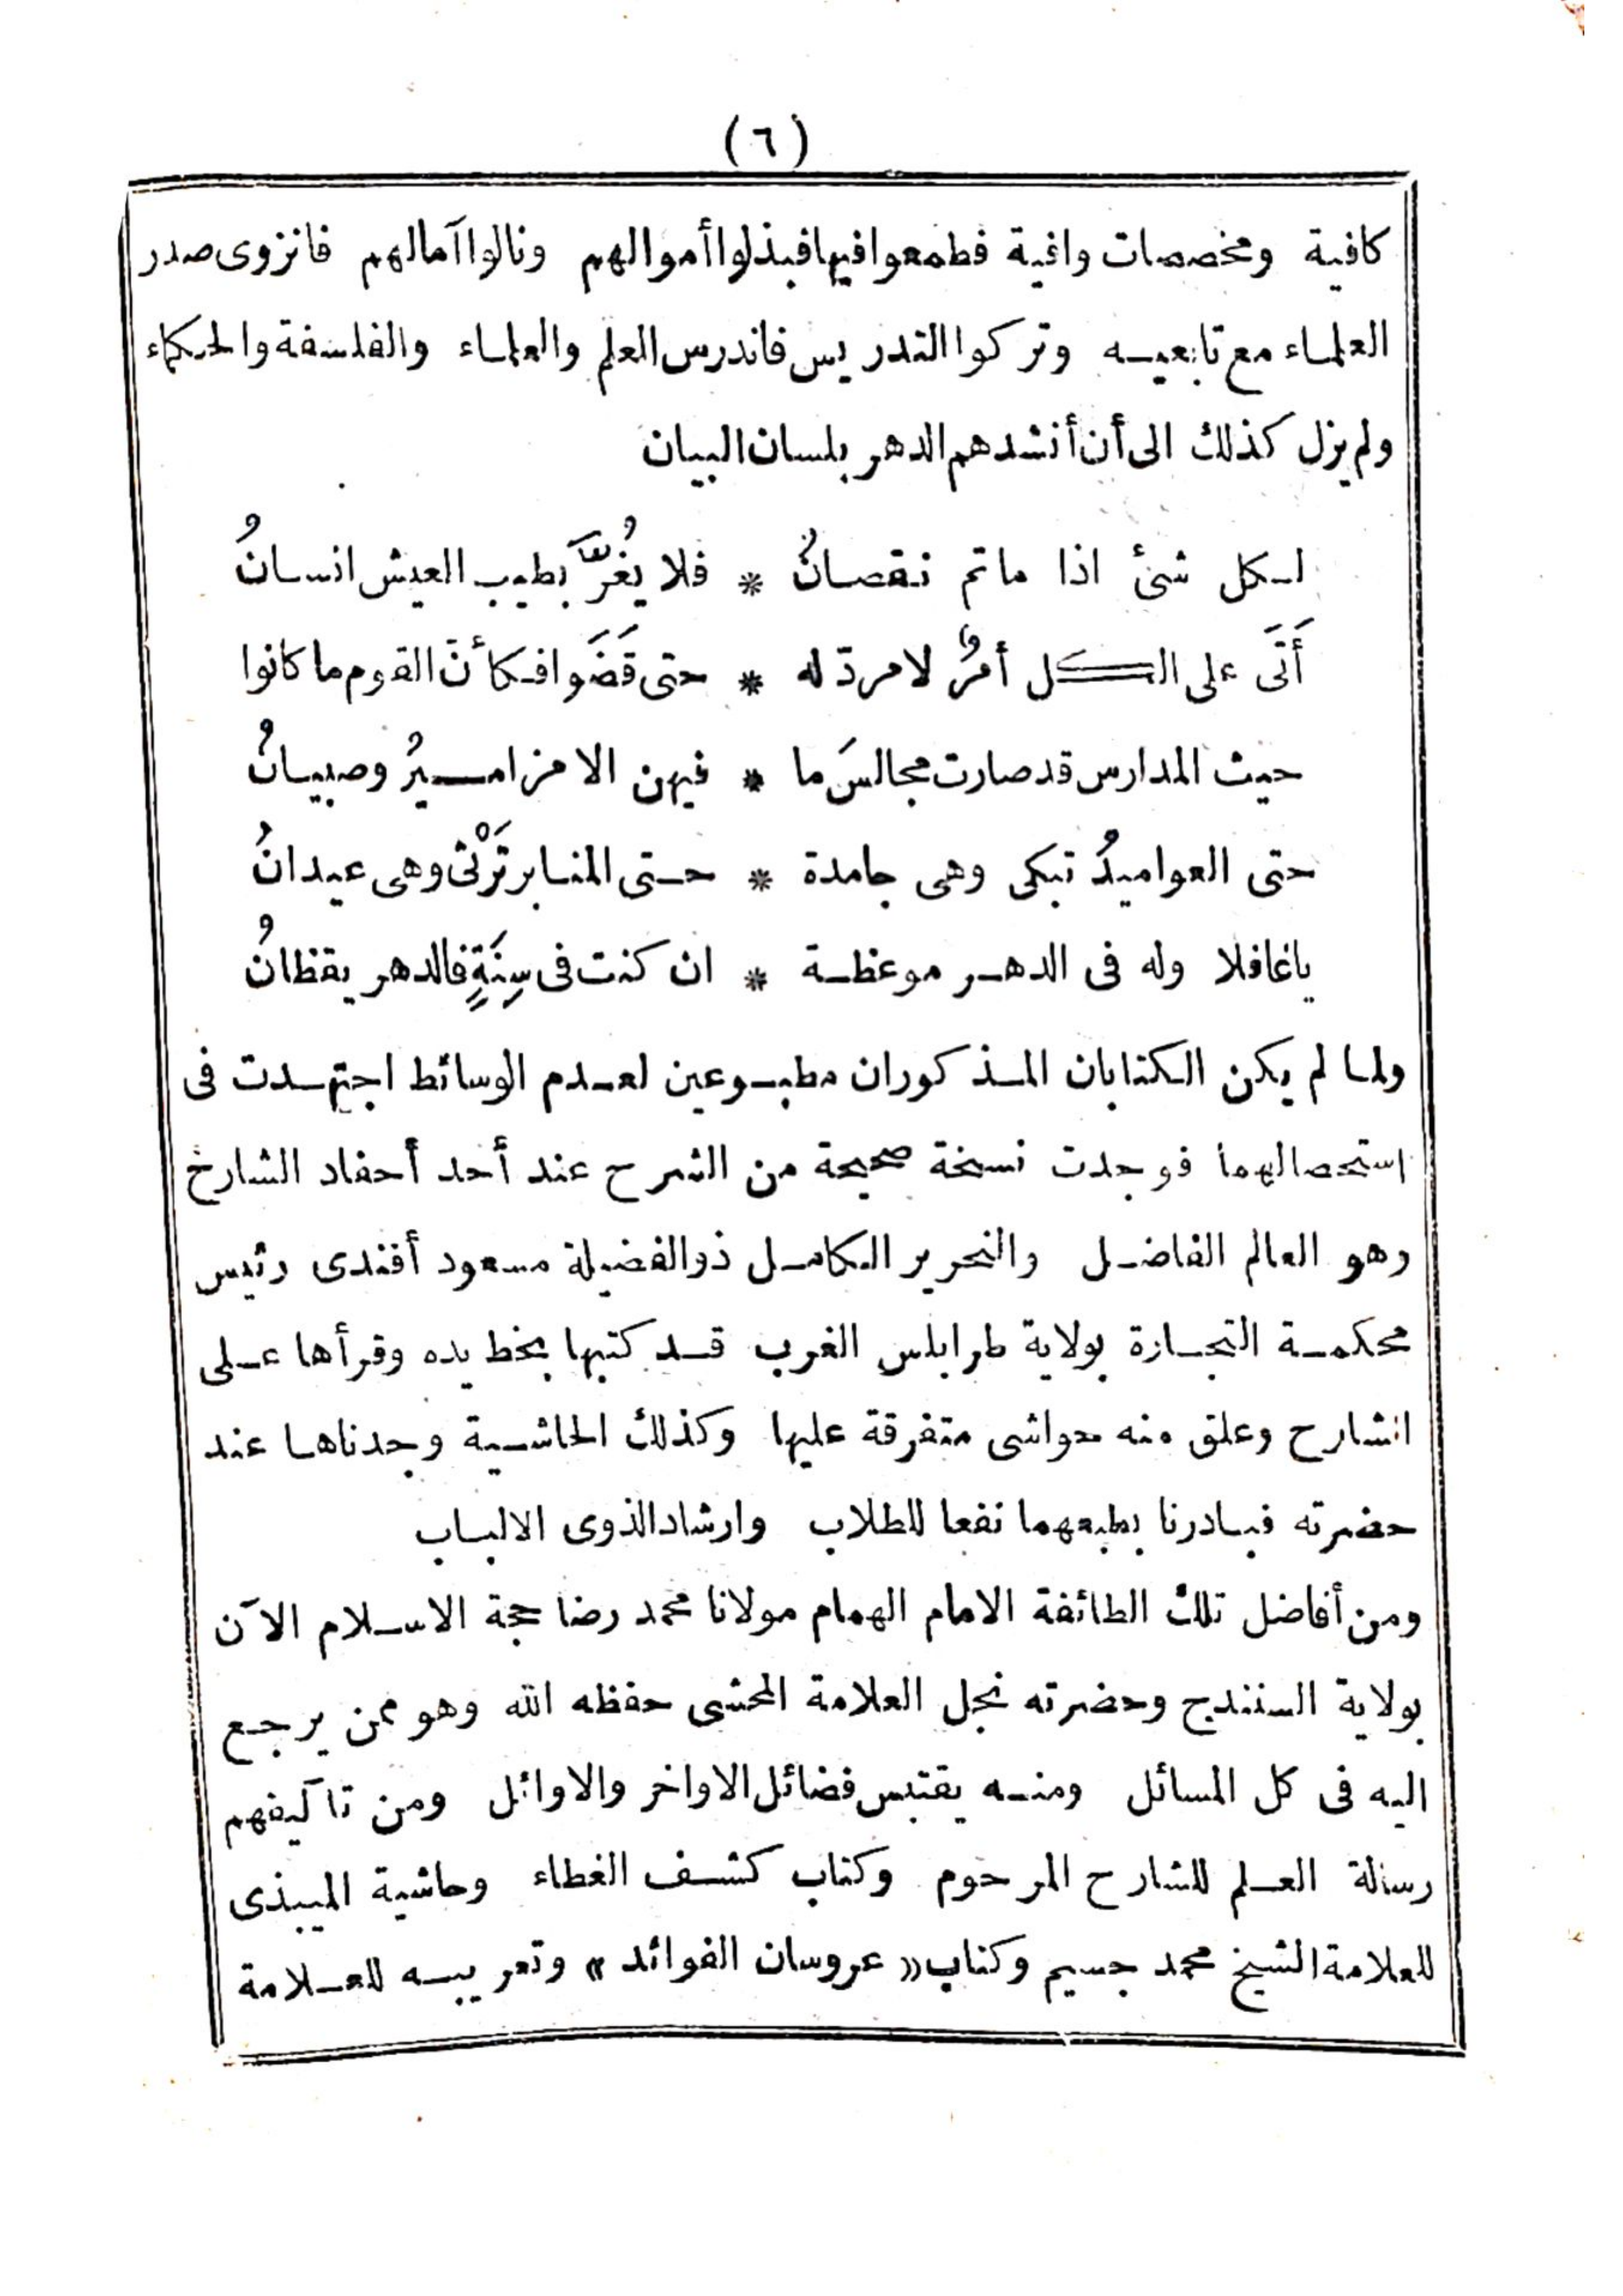 (٦)
كافية ومخصصات وافية فطمعوا فيها فبذلوا أموالهم ونالوا آمالهم فانزوى صدر
العلماء مع تابعيه وتركوا التدريس فاندرس العلم والعلماء والفلسفة والحكماء
ولم يزل كذلك الى أن أنشدهم الدهر بلسان البيان
لكل شئ اذا ما تم نقصانُ * فلا يُغَرَّ بطيب العيش انسانُ
أَتَى على الكل أمرٌ لا مردّ له * حتى قَضَوا فكأنّ القوم ما كانوا
حيث المدارس قد صارت مجالسَ ما * فيهن الا مزاميرٌ وصبيانُ
حتى العواميدُ تبكى وهى جامدة * حتى المنابر تَرْثى وهى عيدانُ
ياغافلا وله فى الدهر موعظة * ان كنت فى سِنَةٍ فالدهر يقظانُ
ولما لم يكن الكتابان المذكوران مطبوعين لعدم الوسائط اجتهدت فى
استحصالهما فوجدت نسخة صحيحة من الشرح عند أحد أحفاد الشارح
وهو العالم الفاضل والنحرير الكامل ذو الفضيلة مسعود أفندى رئيس
محكمة التجارة بولاية طرابلس الغرب قد كتبها بخط يده وقرأها على
الشارح وعلق منه حواشى متفرقة عليها وكذلك الحاشية وجدناها عند
حضرته فبادرنا بطبعهما نفعا للطلاب وارشادا لذوى الالباب
ومن أفاضل تلك الطائفة الامام الهمام مولانا محمد رضا حجة الاسلام الآن
بولاية السنندج وحضرته نجل العلامة المحشى حفظه الله وهو ممن يرجع
اليه فى كل المسائل ومنه يقتبس فضائل الاواخر والاوائل ومن تآليفهم
رسالة العلم للشارح المرحوم وكتاب كشف الغطاء وحاشية الميبذى
للعلامة الشيخ محمد جسيم وكتاب «عروسان الفوائد» وتعريبه للعلامة